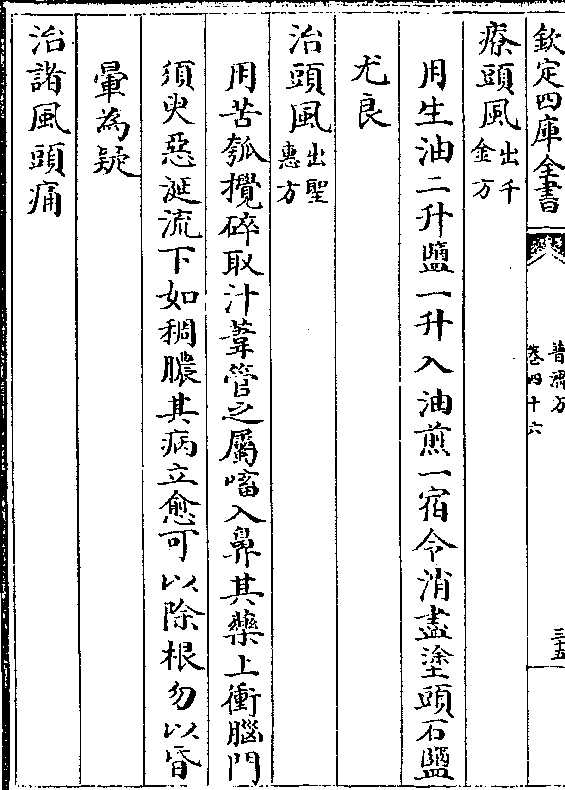 欽定四庫全書
普濟方
卷四十六
三十五
療頭風出千金方
用生油二升鹽一升入油煎一宿令消盡塗頭石鹽
尤良
治頭風出聖惠方
用苦瓠攪碎取汁葦管之屬㗜入鼻其藥上衝腦門
須臾惡涎流下如稠膿其病立愈可以除根勿以昏
暈為疑
治諸風頭痛